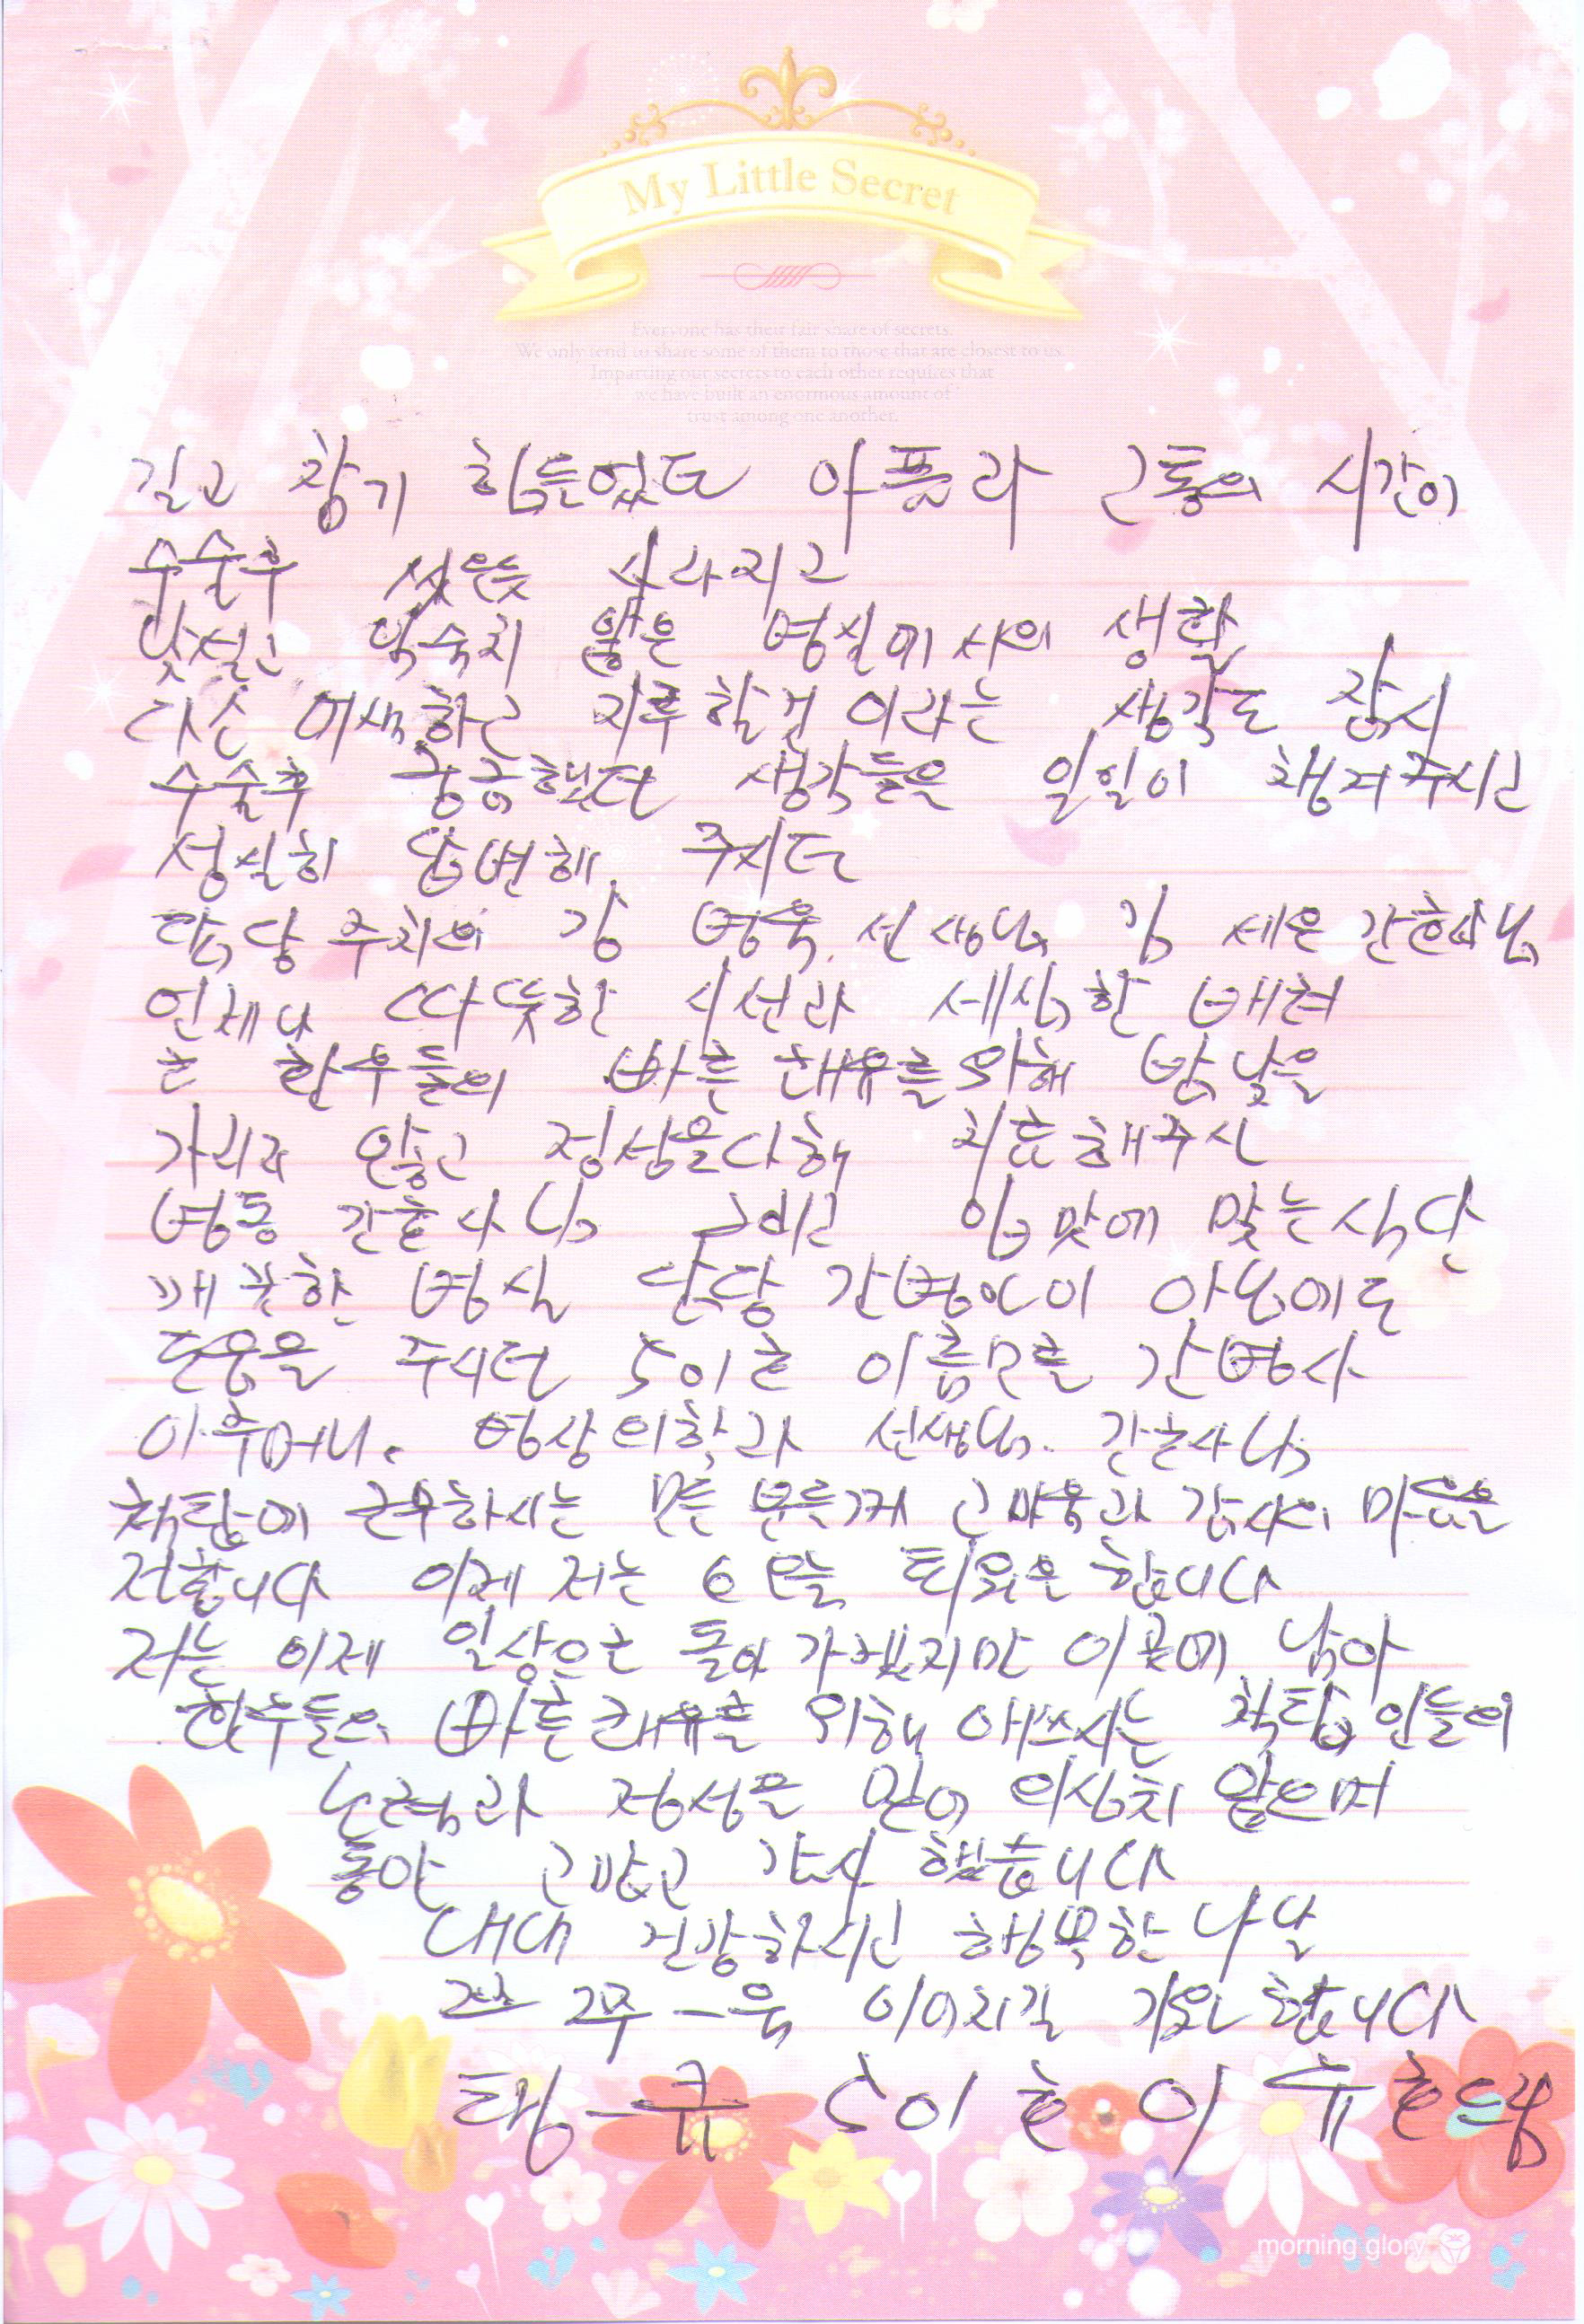 My Little Secret
Everyone has their fair share of secrets.
We only tend to share some of them to those that are closest to us.
Imparting our secrets to each other requires that
we have built an enormous amount of
trust among one another.
길고 참기 힘든었던 아픔과 고통의 시간이
수술후 씻은듯 사라지고
낯설고 익숙치 않은 병실에서의 생활
다소 어색하고 지루할것 이라는 생각도 잠시
수술후 궁금했던 생각들을 일일이 챙겨주시고
성실히 답변해 주시던
담당주치의 강 병욱 선생님 김 세은 간호사님
언제나 따뜻한 시선과 세심한 배려
로 환우들의 빠른 쾌유를위해 밤낮을
가리지 않고 정성을다해 치료해주신
병동 간호사님 그리고 입맛에 맞는식단
깨끗한 병실 담당 간병인이 아님에도
도움을 주시던 501호 이름모를 간병사
아주머니. 영상의학과 선생님. 간호사님
척탑에 근무하시는 모든 분들께 고마움과 감사의 마음을
전합니다 이제 저는 오늘 퇴원을 합니다
저는 이제 일상으로 돌아가겠지만 이곳에 남아
환우들의 빠른쾌유를 위해 애쓰시는 척탑인들의
노력과 정성을 믿어 의심치 않으며
동안 고맙고 감사 했습니다
내내 건강하시고 행복한 나날
쭈-욱 이어지길 기원합니다
탱-큐 501호 이 호드림
morning glory